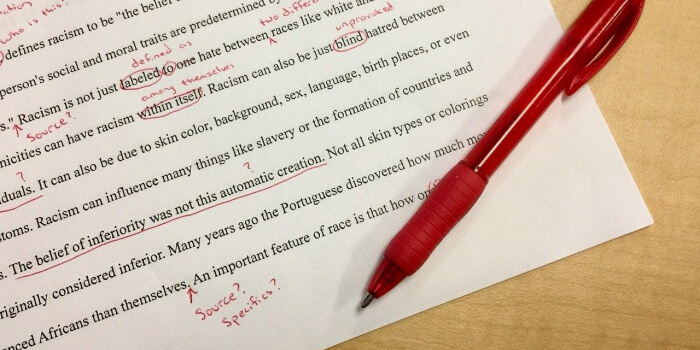 who is this?
two differen
defines racism to be "the belief
unprovoked
person's social and moral traits are predetermined by
defined as
s." Racism is not just labeled to one hate between races like white and
Source?
among themselves
nicities can have racism within itself. Racism can also be just blind hatred between
?
duals. It can also be due to skin color, background, sex, language, birth places, or even
?
stoms. Racism can influence many things like slavery or the formation of countries and
s. The belief of inferiority was not this automatic creation. Not all skin types or colorings
riginally considered inferior. Many years ago the Portuguese discovered how much mo
nced Africans than themselves. An important feature of race is that how
Source?
Specifics?